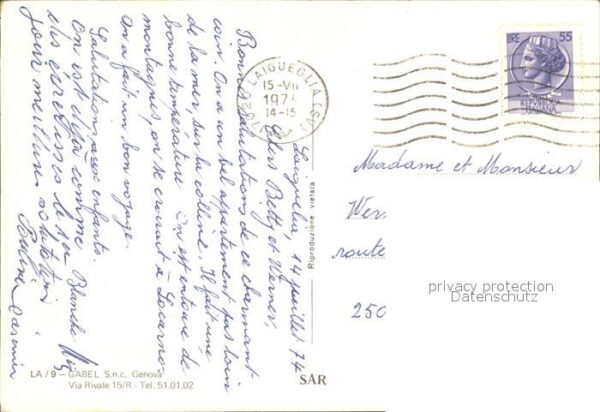 Laigueglia, 14 juillet 74
Chers Betty et Werner,
Bonnes salutations de ce charmant
coin. On a un bel appartement pas loin
de la mer, sur la colline. Il fait une
bonne température. On est entouré de
montagnes, on se croirait à Locarno.
On a fait un bon voyage.
Salutations aux enfants.
On est
comme
Blanche
meilleures salutations
Casimir
LAIGUEGLIA (SV)
15-VII
1974
14-15
LIRE 55
Madame et Monsieur
Wer
route
250
privacy protection
Datenschutz
Riproduzione vietata
LA / 9 - GABEL S.n.c. Genova
Via Rivale 15/R - Tel. 51.01.02
SAR